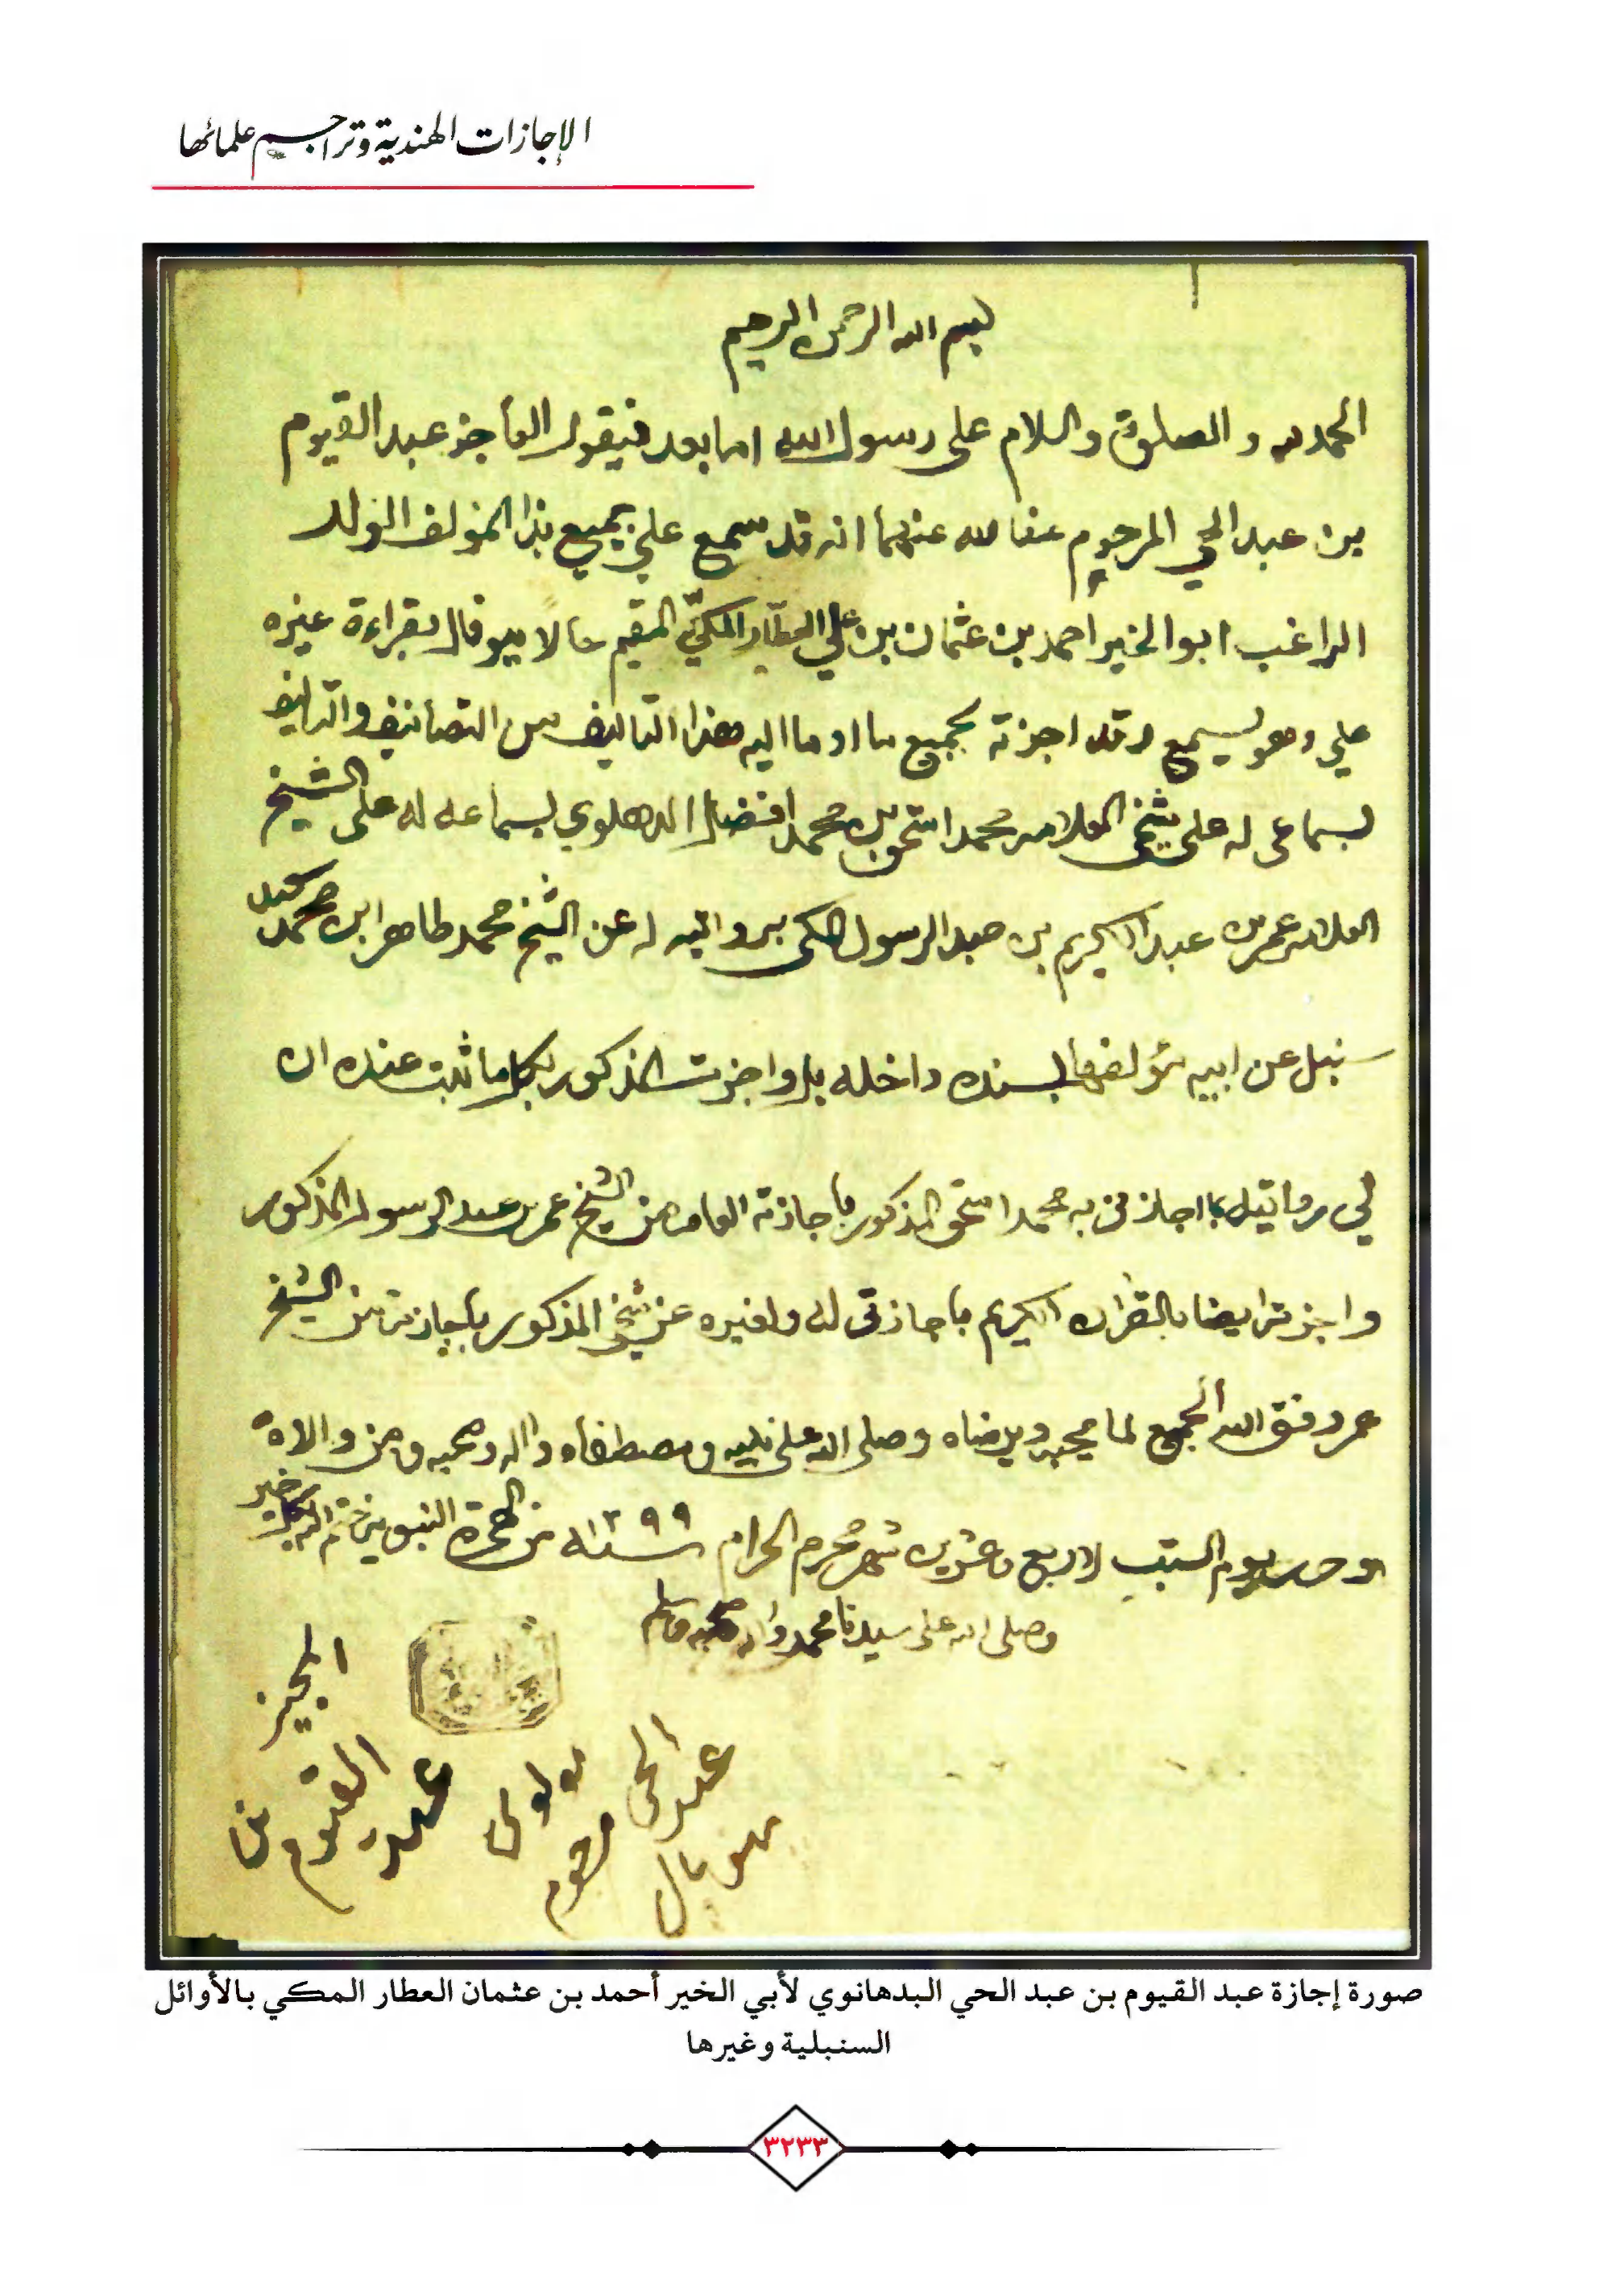 الإجازات الهندية وتراجم علمائها
بسم الله الرحمن الرحيم
الحمد لله والصلوة والسلام على رسول الله اما بعد فيقول العاجز عبد القيوم
بن عبد الحي المرحوم عفا الله عنهما انه قد سمع علي جميع هذا المؤلف الولد
الراغب ابو الخير احمد بن عثمان بن علي العطار المكيّ المقيم حالا ببوفال بقراءة غيره
علي وهو يسمع وقد اجزته بجميع ما اومأ اليه هذا التاليف من التصانيف والتاليف
بسماعى له على شيخى العلامه محمد اسحق بن محمد افضل الدهلوي بسماعه له على الشيخ
العلامه عمر بن عبد الكريم بن عبد الرسول المكى بروايته له عن الشيخ محمد طاهر ابن محمد سعيد
سنبل عن ابيه مؤلفها بسنده داخله بل واجزت المذكور بكل ما ثبت عنده ان
لي روايته بما اجازنى به محمد اسحق المذكور باجازته العامه من الشيخ عمر بن عبد الرسول المذكور
واجزته ايضا بالقران الكريم باجازتى له ولغيره عن شيخي المذكور باجازته من الشيخ
عمر وفق الله الجميع لما يحبه ويرضاه وصلى الله على نبيه ومصطفاه واله وصحبه ومن والاه
يوم السبت لاربع وعشرين شهر محرم الحرام سنه ١٢٩٩ من الهجرة النبويه
وصلى الله على سيدنا محمد واله وصحبه وسلم
المجيز
عبد القيوم بن
مولوى عبد الحى مرحوم
بهوپال
صورة إجازة عبد القيوم بن عبد الحي البدهانوي لأبي الخير أحمد بن عثمان العطار المكي بالأوائل
السنبلية وغيرها
٣٢٣٣